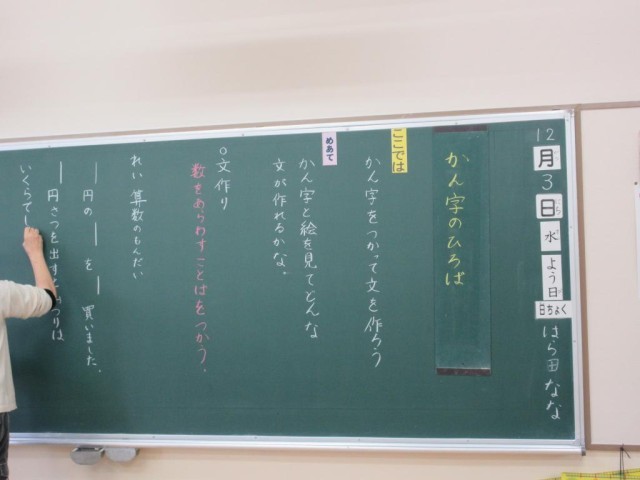 12月3日水よう日
日ちょく はら田なな
かん字のひろば
ここでは
かん字をつかって文を作ろう
めあて
かん字と絵を見てどんな
文が作れるかな。
○文作り
数をあらわすことばをつかう。
れい 算数のもんだい
｜円の｜を｜買いました。
｜円さつを出すとおつりは
いくらでし